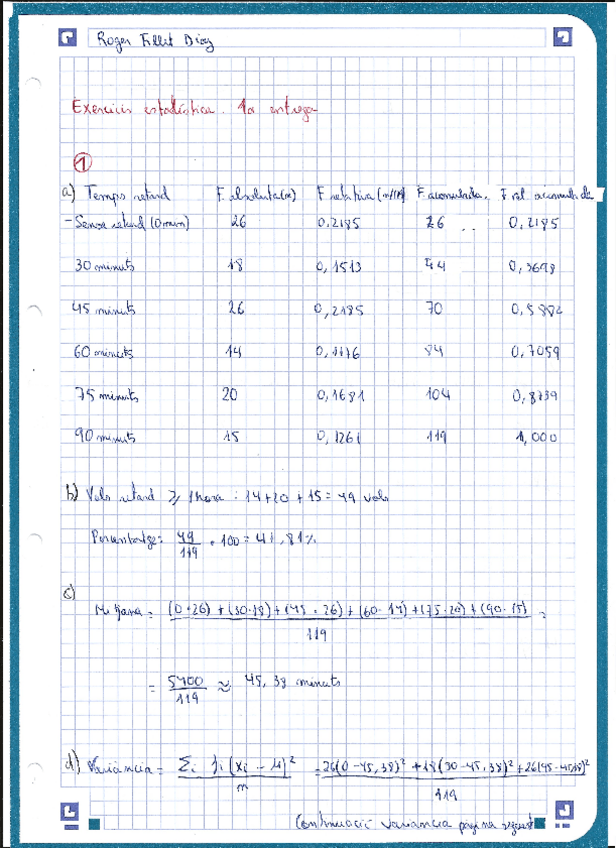 Roger Fillit Díaz
Exercicis estadística. 1a entrega
1
a) Temps retard F. absoluta(n) F. relativa (n/119) F. acumulada. F. rel. acumulada
- Sense retard (0 min) 26 0,2185 26 0,2185
30 minuts 18 0,1513 44 0,3698
45 minuts 26 0,2185 70 0,5882
60 minuts 14 0,1176 84 0,7059
75 minuts 20 0,1681 104 0,8739
90 minuts 15 0,1261 119 1,000
b) Vols retard ≥ 1 hora : 14+20+15 = 49 vols
Percentatge = 49/119 · 100 = 41,81%
c)
Mitjana = (0·26) + (30·18) + (45·26) + (60·14) + (75·20) + (90·15) / 119 =
= 5400/119 ≈ 45,38 minuts
d) Variància = Σi fi (xi - μ)² / n = 26(0-45,38)² + 18(30-45,38)² + 26(45-45,38)² / 119
Continuació variancia pàgina següent